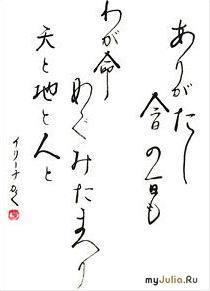 ありがたし
今日の一日も
わが命
めぐみたまへり
天と地と人と
イリーナかく
myJulia.Ru